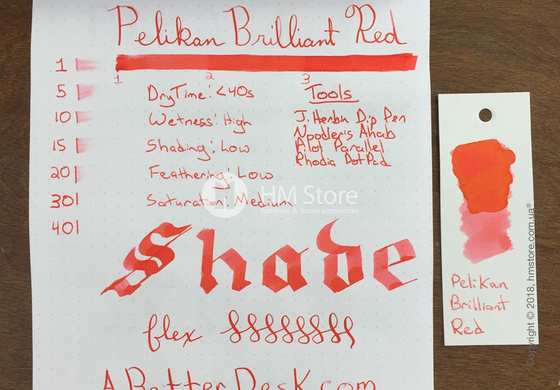 Pelikan Brilliant Red
1 2 3
1
5
10
15
20
30
40
Dry Time: <40s
Wetness: High
Shading: Low
Feathering: Low
Saturation: Medium
Tools
J. Herbin Dip Pen
Noodler's Ahab
Pilot Parallel
Rhodia DotPad
HM Store
furniture & home accessories
Shade
flex
ABetterDesk.com
Pelikan
Brilliant
Red
Copyright © 2018, hmstore.com.ua®